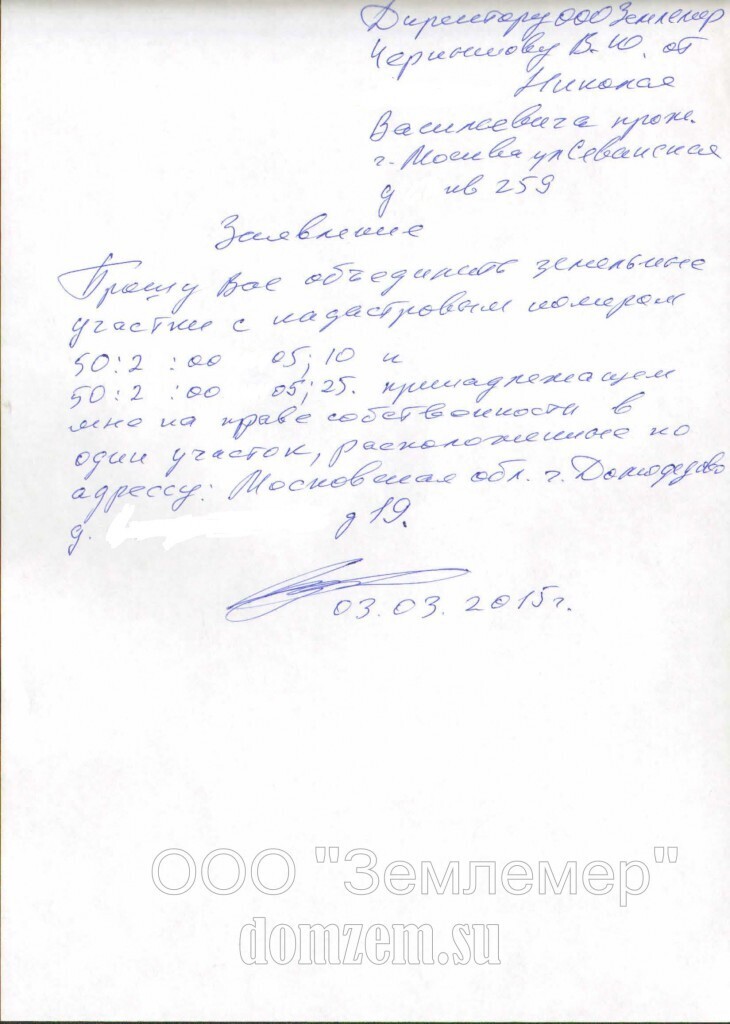 Директору ООО Землемер
Чернышову В.Ю. от
Николая
Васильевича прож.
г. Москва ул Севанская
д кв 259
Заявление
Прошу Вас объединить земельные
участки с кадастровым номером
50:2 :00 05;10 и
50:2 :00 05;25. принадлежащем
мне на праве собственности в
один участок, расположенные по
адрессу: Московская обл. г. Домодедово
д. д 19.
03.03.2015г.
ООО "Землемер"
domzem.su